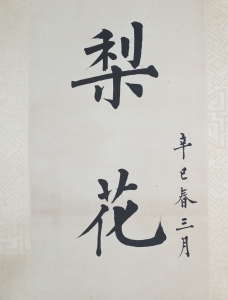 梨花
辛巳春三月